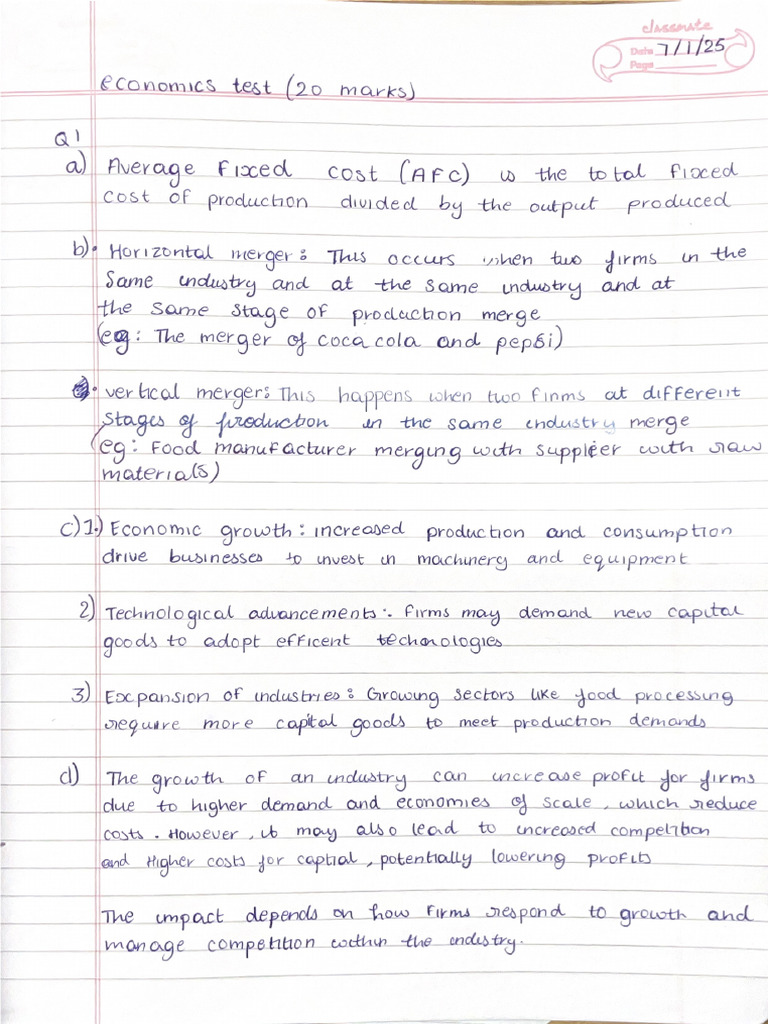 classmate
Date 7/1/25
Page
economics test (20 marks)
Q1
a) Average Fixed cost (AFC) is the total fixed
cost of production divided by the output produced
b) • Horizontal merger: This occurs when two firms in the
same industry and at the same industry and at
the same stage of production merge
(eg: The merger of coca cola and pepsi)
• vertical merger: This happens when two firms at different
stages of production in the same industry merge
(eg: Food manufacturer merging with supplier with raw
materials)
c) 1.) Economic growth: increased production and consumption
drive businesses to invest in machinery and equipment
2) Technological advancements:. Firms may demand new capital
goods to adopt efficent technologies
3) Expansion of industries: Growing sectors like food processing
require more capital goods to meet production demands
d) The growth of an industry can increase profit for firms
due to higher demand and economies of scale, which reduce
costs. However, it may also lead to increased competition
and Higher costs for captial, potentially lowering profits
The impact depends on how firms respond to growth and
manage competition within the industry.